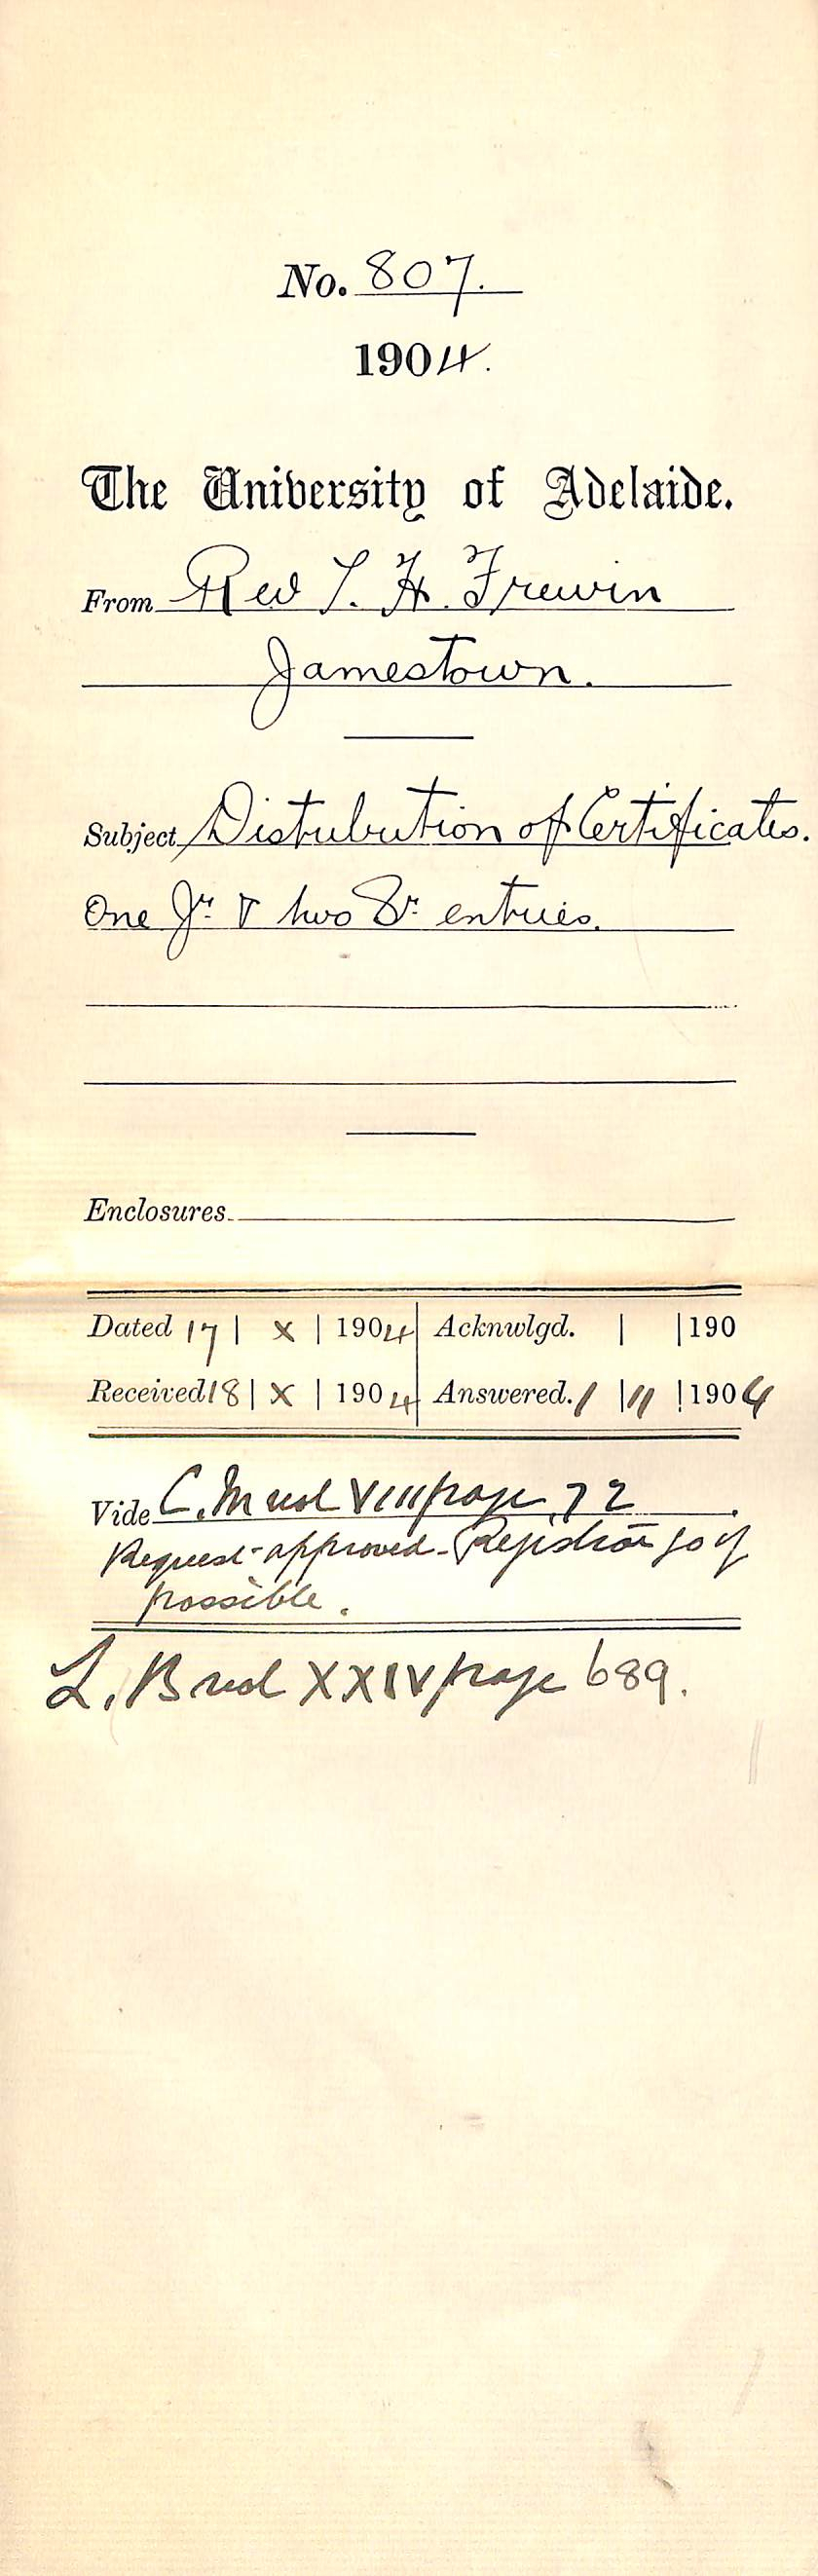 No. 807.
1904.
The University of Adelaide.
From Rev T. H. Frewin
Jamestown.
Subject Distribution of Certificates.
One Jr. & two Sr. entries.
Enclosures
Dated 17 | X | 1904 Acknwlgd. | | 190
Received 18 | X | 1904 Answered. 1 | 11 | 1904
Vide C. M vol VIII page 72
Request approved - Registrar to go if
possible.
L. B vol XXIV page 689.